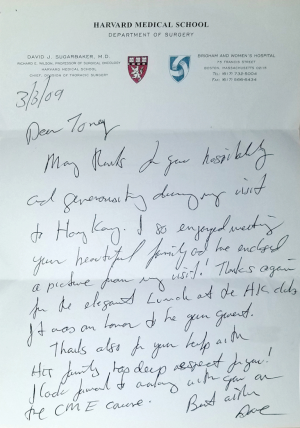 HARVARD MEDICAL SCHOOL
DEPARTMENT OF SURGERY
DAVID J. SUGARBAKER, M.D.
RICHARD E. WILSON, PROFESSOR OF SURGICAL ONCOLOGY
HARVARD MEDICAL SCHOOL
CHIEF, DIVISION OF THORACIC SURGERY
BRIGHAM AND WOMEN'S HOSPITAL
75 FRANCIS STREET
BOSTON, MASSACHUSETTS 02115
TEL (617) 732-5004
FAX (617) 566-3434
3/3/09
Dear
Many thanks for your hospitality
and generousity during my visit
to Hong Kong. I so enjoyed meeting
your beautiful family and have enclosed
a picture from my visit! Thanks again
for the elegant Lunch at the HK club.
It was an honor to be your guest.
Thanks also for your help with
family deep respect for you!
I look forward to working with you on
the CME course.
Best wishes
Dave